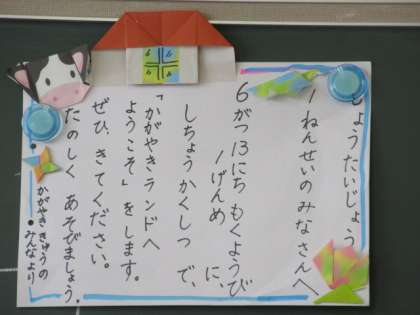 しょうたいじょう
1ねんせいのみなさんへ
6がつ13にち もくようび
1げんめ に、
しちょうかくしつ で、
「かがやきランドへ
ようこそ」をします。
ぜひ、きてください。
たのしく あそびましょう。
かがやききゅうの
みんなより